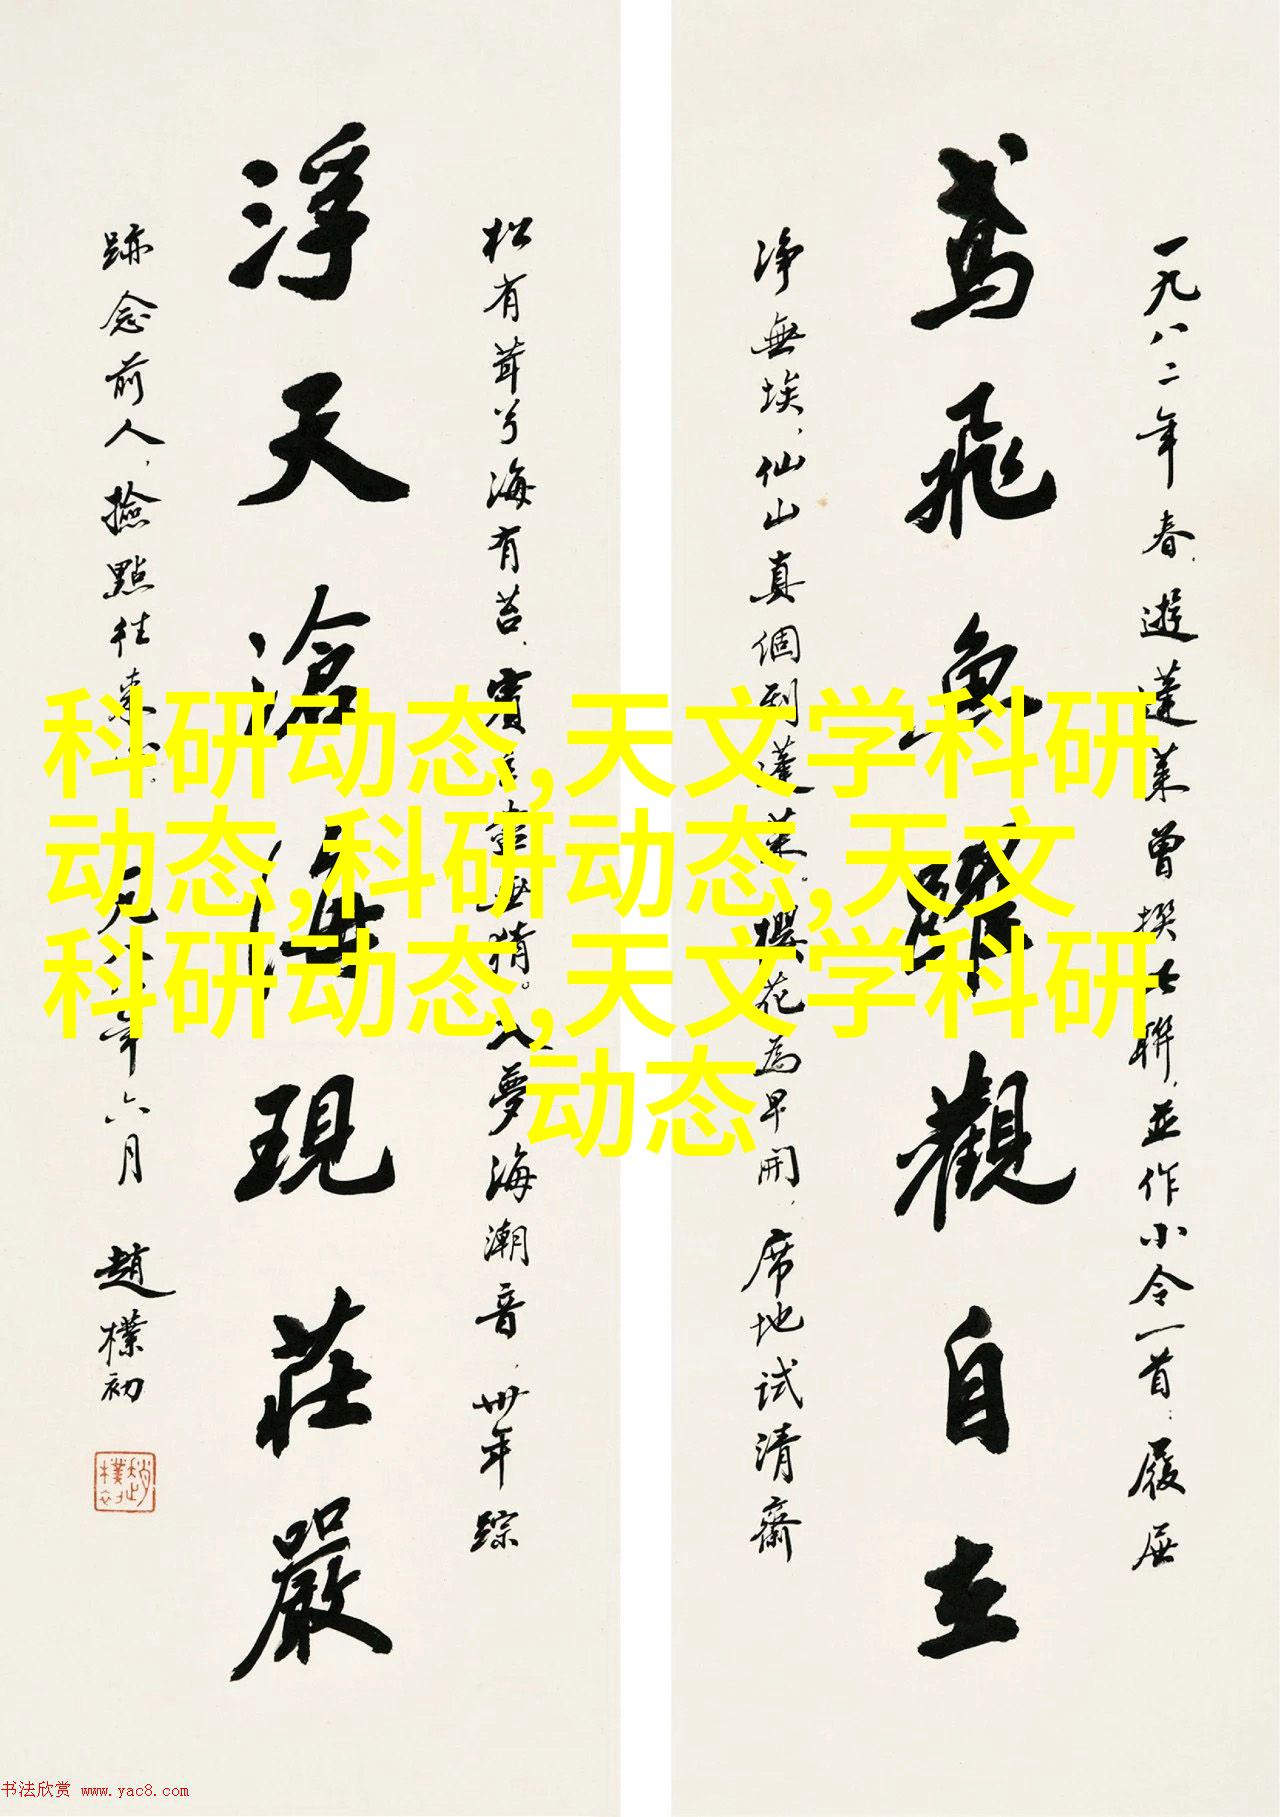 一九八二年春，遊蓬莱曾撰此聯，並作小令一首：履屐
鳶飛魚躍觀自在
净無埃，仙山真個到蓬莱。櫻花為早開，席地試清齋
松有茸兮海有苔，賓主無猜。入夢海潮音，卅年踪
浮天滄海現莊嚴
跡念前人，撿點往来 年六月 趙樸初
趙樸初
科研动态,天文学科研
动态,科研动态,天文
科研动态,天文学科研
动态
书法欣赏 www.yac8.com